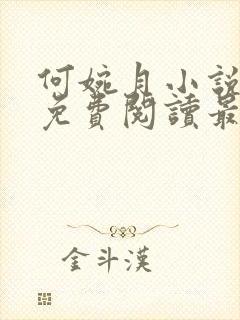 何婉月小說
免費閱讀最
金斗漢